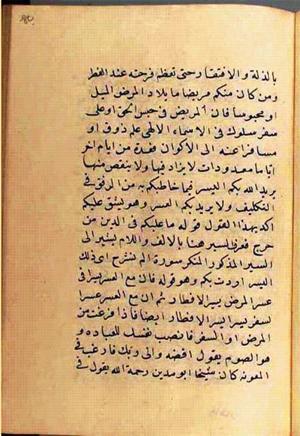 بالذلة والافتقار حتى تعظم فرحته عند الفطر
ومن كان منكم مريضا مايلا دالمرض الميل
او محبوسا فان المريض في حبس الحق او على
سفر سلوك في الاسماء الالهي علم ذوق او
مسافرا عنه الى الاكوان فعدة من ايام اخر
اياما معدودات لا يزاد فيها ولا ينقص منها
يريد الله بكم اليسر فيما خاطبكم به من الرفق في
التكليف ولا يريد بكم العسر وهو ما يشق عليكم
اكد بهذا القول قوله ما عليكم في الدين من
حرج فعرف اليسر هنا بالالف واللام يشير الى
اليسر المذكور المنكر سورة الم نشرح اي ذلك
اليسر اردت بكم وهو قوله فان مع العسر يسرا في
عسر المرض يسر الافطار ثم ان مع العسر عسر
السفر يسرا يسر الافطار ايضا فاذا فرغت من
المرض او السفر فانصب نفسك للعبادة و
هو الصوم يقول اقضه والى ربك فارغب في
المعونة كان شيخنا ابو مدين رحمة الله يقول في